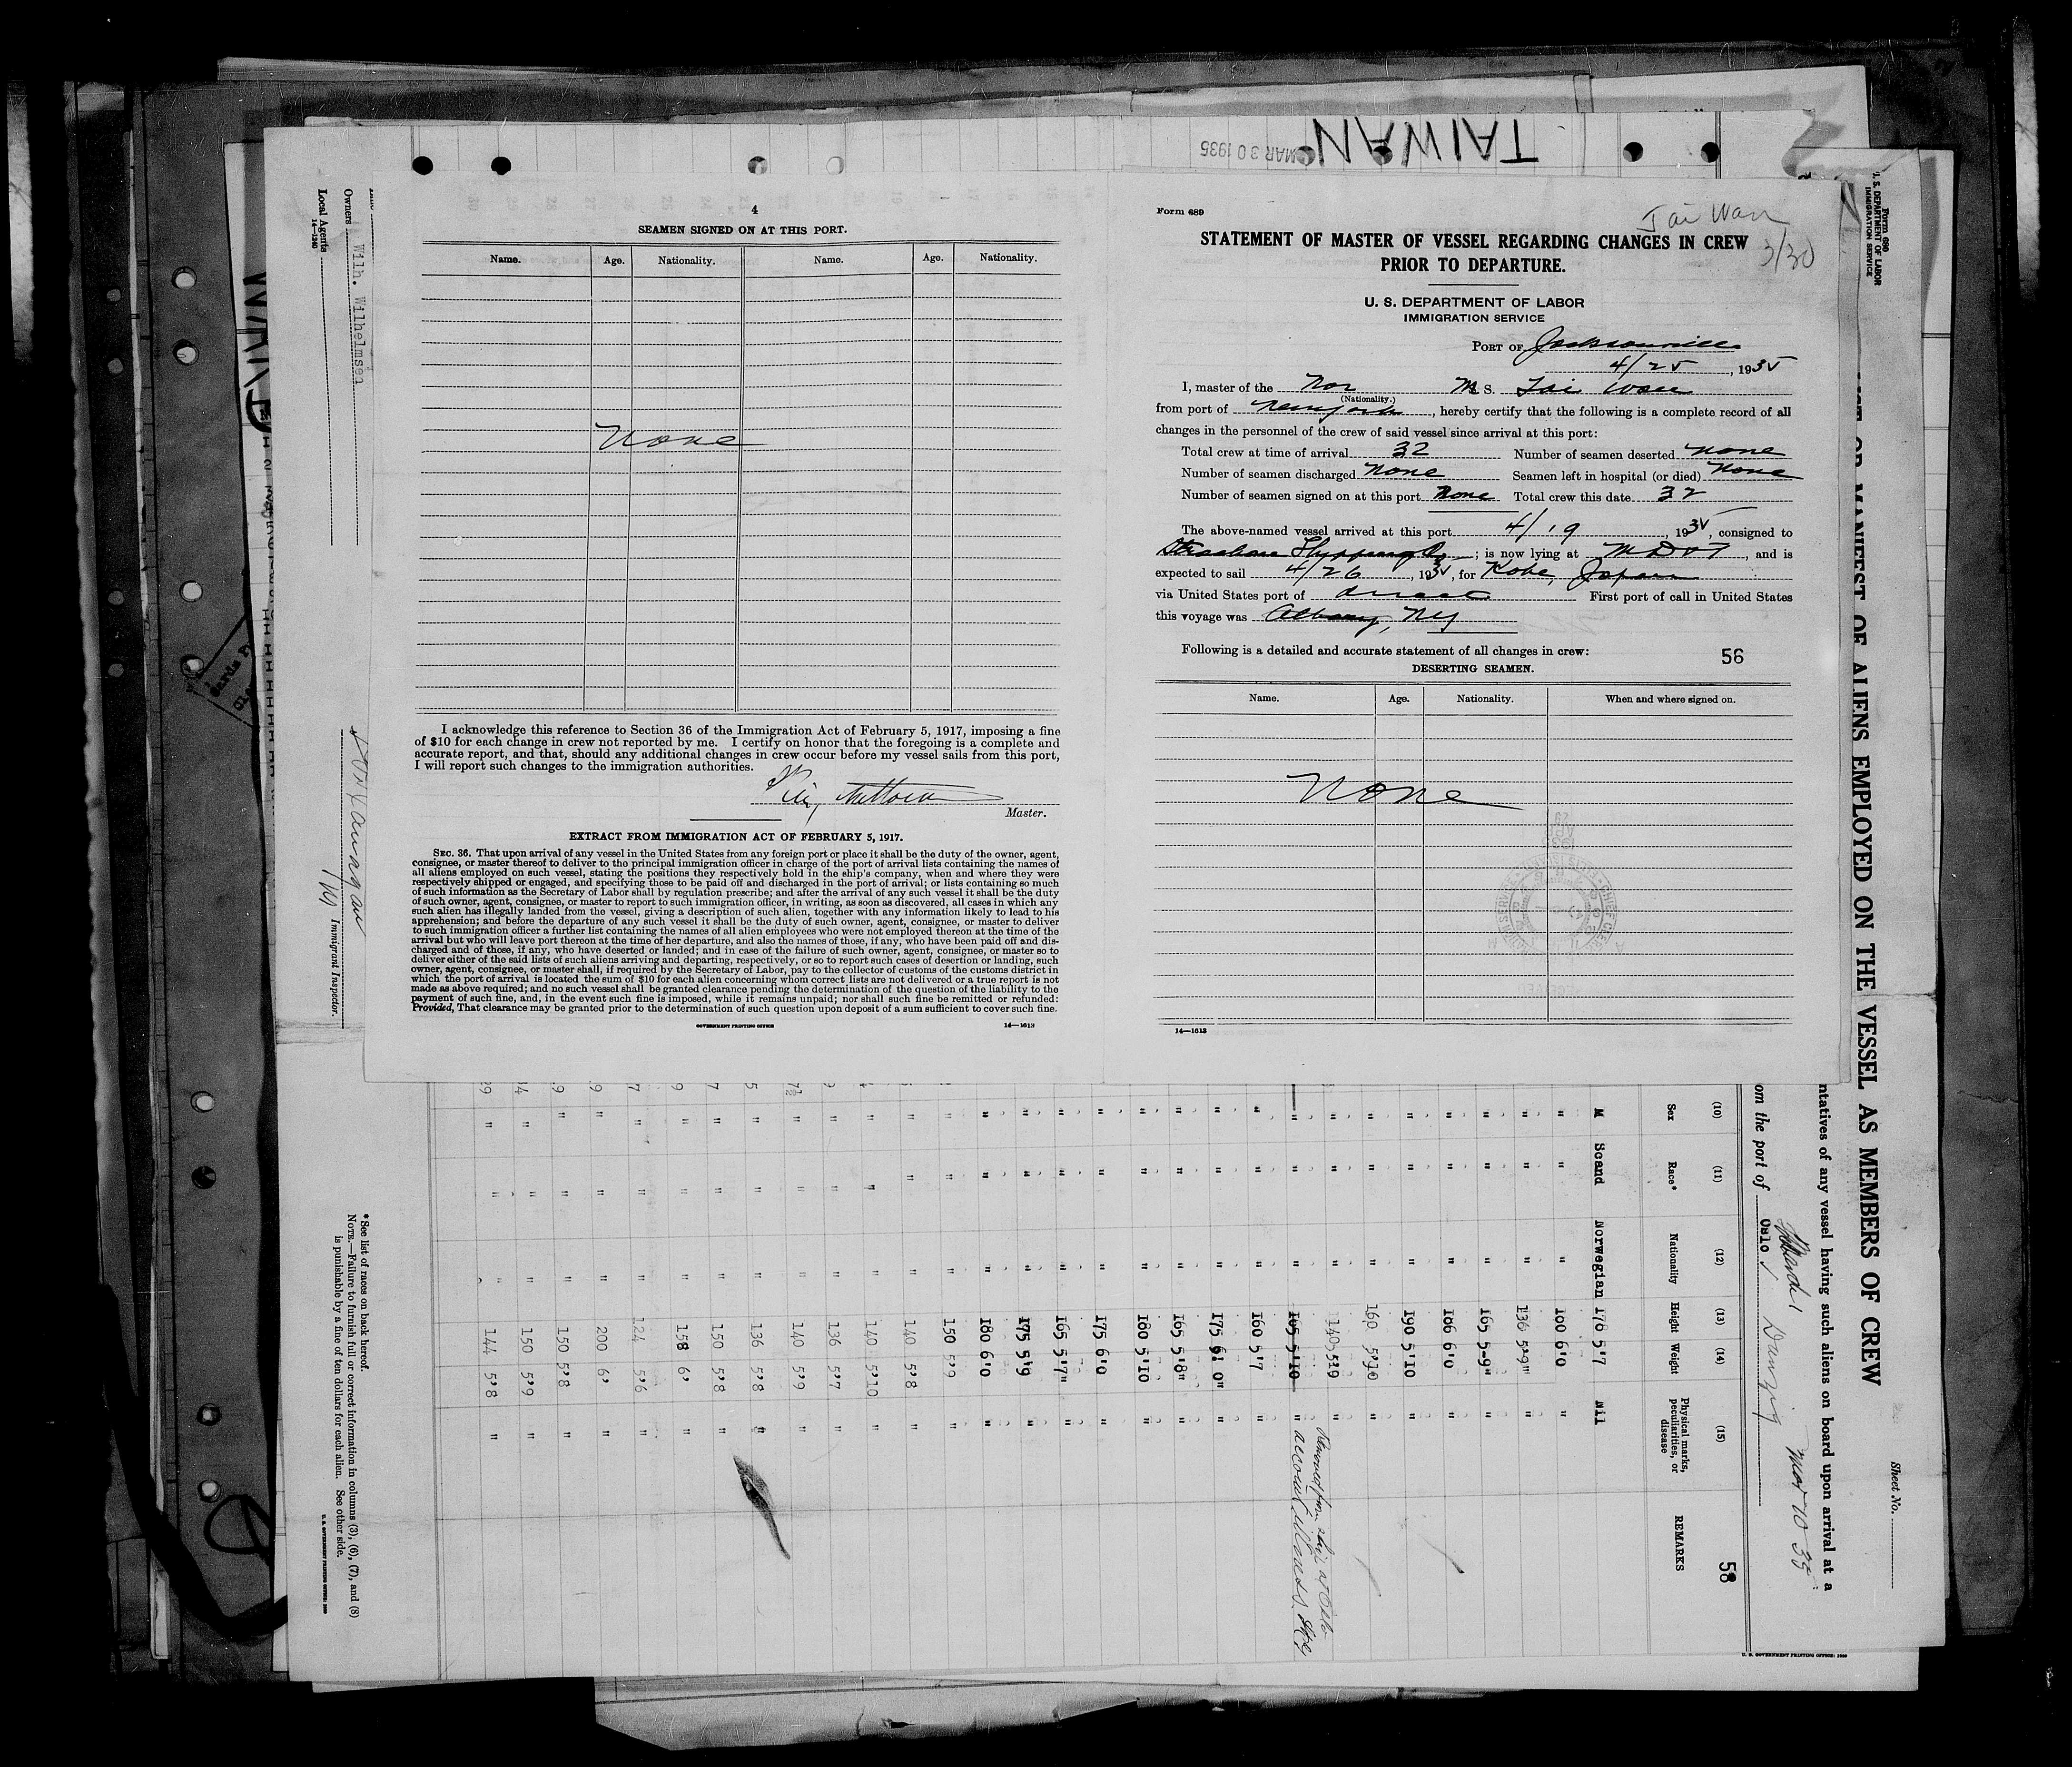 TAIWAN
MAR 30 1935
4
SEAMEN SIGNED ON AT THIS PORT.
Name. Age. Nationality. Name. Age. Nationality.
None
I acknowledge this reference to Section 36 of the Immigration Act of February 5, 1917, imposing a fine
of $10 for each change in crew not reported by me. I certify on honor that the foregoing is a complete and
accurate report, and that, should any additional changes in crew occur before my vessel sails from this port,
I will report such changes to the immigration authorities.
Master.
EXTRACT FROM IMMIGRATION ACT OF FEBRUARY 5, 1917.
SEC. 36. That upon arrival of any vessel in the United States from any foreign port or place it shall be the duty of the owner, agent,
consignee, or master thereof to deliver to the principal immigration officer in charge of the port of arrival lists containing the names of
all aliens employed on such vessel, stating the positions they respectively hold in the ship's company, when and where they were
respectively shipped or engaged, and specifying those to be paid off and discharged in the port of arrival; or lists containing so much
of such information as the Secretary of Labor shall by regulation prescribe; and after the arrival of any such vessel it shall be the duty
of such owner, agent, consignee, or master to report to such immigration officer, in writing, as soon as discovered, all cases in which any
such alien has illegally landed from the vessel, giving a description of such alien, together with any information likely to lead to his
apprehension; and before the departure of any such vessel it shall be the duty of such owner, agent, consignee, or master to deliver
to such immigration officer a further list containing the names of all alien employees who were not employed thereon at the time of the
arrival but who will leave port thereon at the time of her departure, and also the names of those, if any, who have been paid off and dis-
charged and of those, if any, who have deserted or landed; and in case of the failure of such owner, agent, consignee, or master so to
deliver either of the said lists of such aliens arriving and departing, respectively, or so to report such cases of desertion or landing, such
owner, agent, consignee, or master shall, if required by the Secretary of Labor, pay to the collector of customs of the customs district in
which the port of arrival is located the sum of $10 for each alien concerning whom correct lists are not delivered or a true report is not
made as above required; and no such vessel shall be granted clearance pending the determination of the question of the liability to the
payment of such fine, and, in the event such fine is imposed, while it remains unpaid; nor shall such fine be remitted or refunded:
Provided, That clearance may be granted prior to the determination of such question upon deposit of a sum sufficient to cover such fine.
GOVERNMENT PRINTING OFFICE 14—1613
Form 689
Tai Wan
3/30
STATEMENT OF MASTER OF VESSEL REGARDING CHANGES IN CREW
PRIOR TO DEPARTURE.
U. S. DEPARTMENT OF LABOR
IMMIGRATION SERVICE
PORT OF Jacksonville
4/25, 1935
I, master of the Nor M. S. Tai Wan
(Nationality.)
from port of New York, hereby certify that the following is a complete record of all
changes in the personnel of the crew of said vessel since arrival at this port:
Total crew at time of arrival 32 Number of seamen deserted None
Number of seamen discharged None Seamen left in hospital (or died) None
Number of seamen signed on at this port None Total crew this date 32
The above-named vessel arrived at this port 4/19, 1935, consigned to
Strachan Shipping Co; is now lying at M D & T, and is
expected to sail 4/26, 1935, for Kobe, Japan
via United States port of direct First port of call in United States
this voyage was Albany, NY
Following is a detailed and accurate statement of all changes in crew:
56
DESERTING SEAMEN.
Name. Age. Nationality. When and where signed on.
None
14—1613
Form 689
U. S. DEPARTMENT OF LABOR
IMMIGRATION SERVICE
OF ALIENS EMPLOYED ON THE VESSEL AS MEMBERS OF CREW
Sheet No.
ntatives of any vessel having such aliens on board upon arrival at a
om the port of Oslo, Danzig Mar 10 35
58
(10) (11) (12) (13) (14) (15)
Sex Race* Nationality Height Weight Physical marks, peculiarities, or disease REMARKS
M Scand Norwegian 178 5'7 Nil
" " " 180 6'0 "
" " " 136 5'9" "
" " " 165 5-9" "
" " " 186 6'0 "
" " " 190 5'10 "
" " " 160 5'10 "
" " " 140 5'9 "
" " " 165 5'10 " Removed from ship at Oslo account illness.
" " " 160 5'7 "
" " " 175 6'0" "
" " " 165 5'8" "
" " " 180 5'10 "
" " " 175 6'0 "
" " " 165 5'7" "
" " " 175 5'9 "
" " " 180 6'0 "
" " " 150 5'9 "
" " " 140 5'8 "
" " " 140 5'10 "
" " " 136 5'7 "
" " " 140 5'9 "
" " " 136 5'8 "
" " " 150 5'8 "
" " " 158 6' "
" " " 124 5'6 "
" " " 200 6' "
" " " 150 5'8 "
" " " 150 5'9 "
" " " 144 5'8 "
* See list of races on back hereof.
NOTE.—Failure to furnish full or correct information in columns (3), (6), (7), and (8)
is punishable by a fine of ten dollars for each alien. See other side.
U. S. GOVERNMENT PRINTING OFFICE
Owners Wilh. Wilhelmsen
Local Agents
14—1240
Immigrant Inspector.